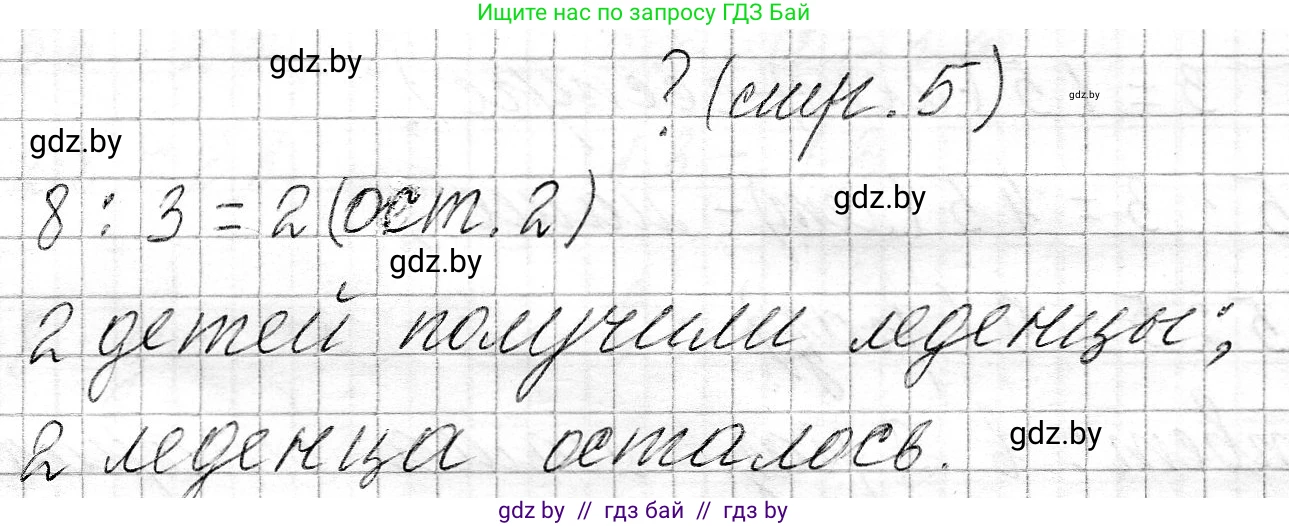 Ищите нас по запросу ГДЗ Бай
gdz.by
? (стр. 5)
gdz.by
gdz.by
8 : 3 = 2 (ост. 2)
gdz.by
gdz.by
2 детей получили леденцы;
2 леденца осталось.
gdz.by
gdz by // гдз бай // гдз by